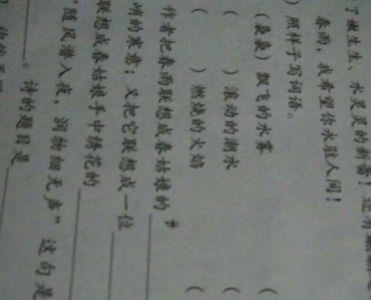 生生、水灵灵的新春！还有
春雨，我希望你永驻人间！
）照样子写词语。
（袅袅）飘飞的水雾 （
（ ）滚动的潮水 （
（ ）燃烧的火焰 （
作者把春雨联想成春姑娘的
的寒意；又把它联想成一位
联想成春姑娘手中绣花的
“随风潜入夜，润物细无声”这句是
。诗的题目是